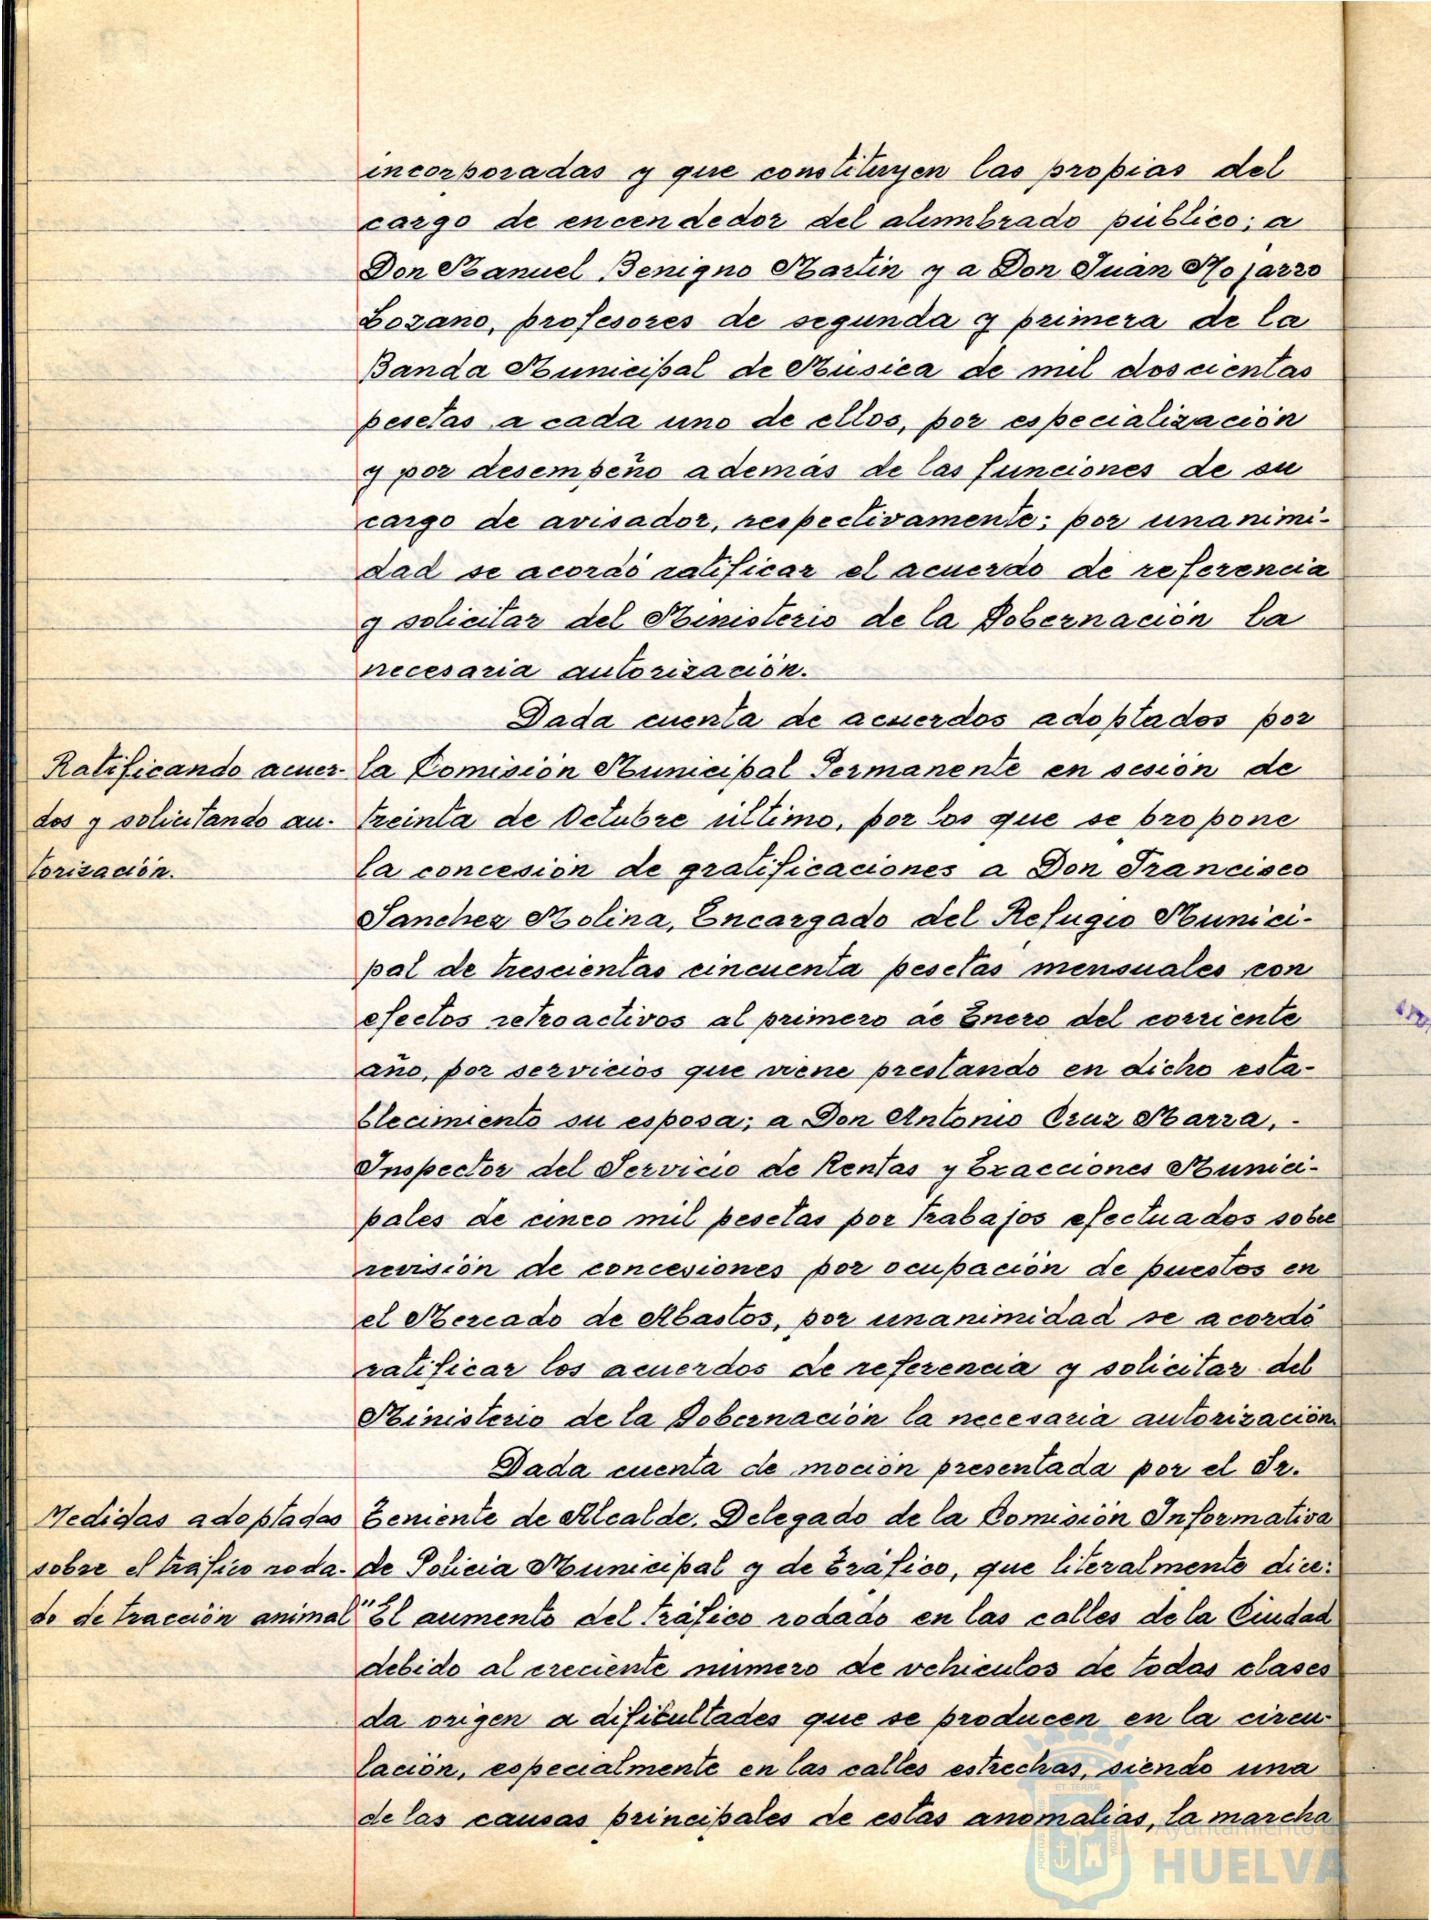 incorporadas y que constituyen las propias del
cargo de encendedor del alumbrado público; a
Don Manuel Benigno Martin y a Don Juan Mojarro
Lozano, profesores de segunda y primera de la
Banda Municipal de Música de mil doscientas
pesetas a cada uno de ellos, por especialización
y por desempeño además de las funciones de su
cargo de avisador, respectivamente; por unanimi-
dad se acordó ratificar el acuerdo de referencia
y solicitar del Ministerio de la Gobernación la
necesaria autorización.
Dada cuenta de acuerdos adoptados por
Ratificando acuer-
dos y solicitando au-
torización.
la Comisión Municipal Permanente en sesión de
treinta de Octubre último, por los que se propone
la concesión de gratificaciones a Don Francisco
Sanchez Molina, Encargado del Refugio Munici-
pal de trescientas cincuenta pesetas mensuales con
efectos retroactivos al primero de Enero del corriente
año, por servicios que viene prestando en dicho esta-
blecimiento su esposa; a Don Antonio Cruz Marra, -
Inspector del Servicio de Rentas y Exacciones Munici-
pales de cinco mil pesetas por trabajos efectuados sobre
revisión de concesiones por ocupación de puestos en
el Mercado de Abastos, por unanimidad se acordó
ratificar los acuerdos de referencia y solicitar del
Ministerio de la Gobernación la necesaria autorización.
Dada cuenta de moción presentada por el Sr.
Medidas adoptadas
sobre el tráfico roda-
do de tracción animal
Teniente de Alcalde, Delegado de la Comisión Informativa
de Policia Municipal y de Tráfico, que literalmente dice:
"El aumento del tráfico rodado en las calles de la Ciudad
debido al creciente número de vehiculos de todas clases
da origen a dificultades que se producen en la circu-
lación, especialmente en las calles estrechas, siendo una
de las causas principales de estas anomalias, la marcha
Ayuntamiento de
HUELVA